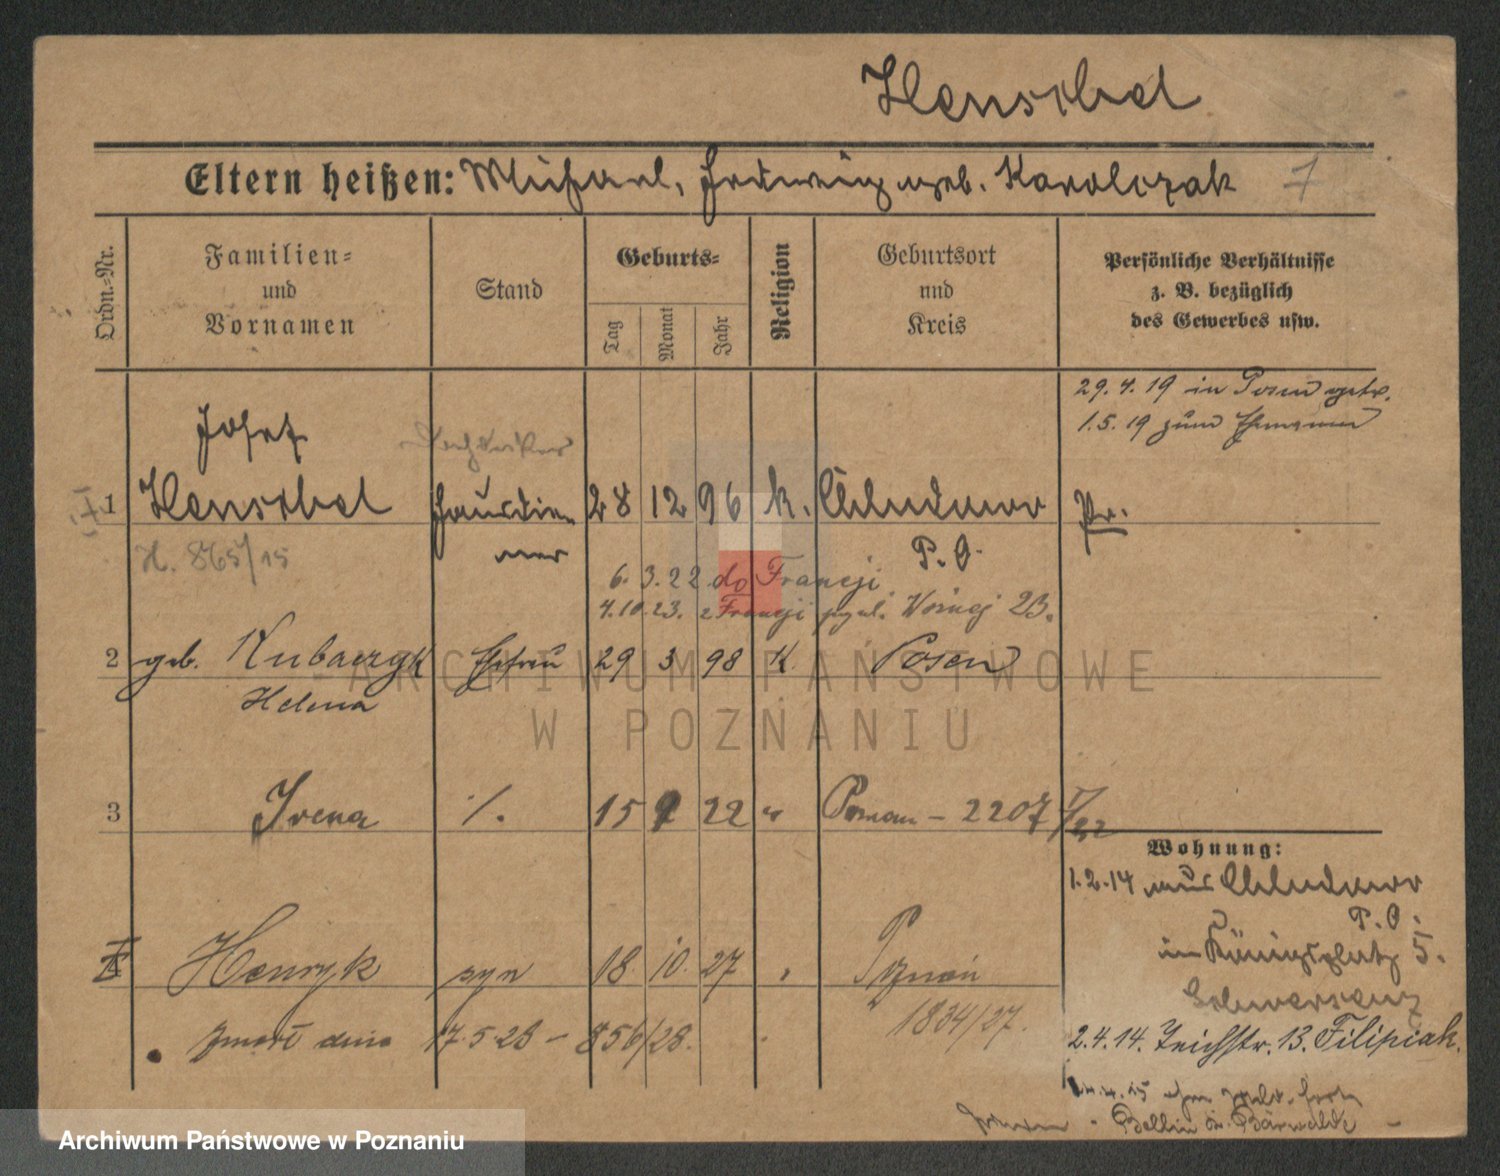 Henschel
Eltern heißen: Michael, Hedwig geb. Karolczak
Ordn.-Nr.
Familien-
und
Vornamen
Stand
Geburts-
Tag
Monat
Jahr
Religion
Geburtsort
und
Kreis
Persönliche Verhältnisse
z. B. bezüglich
des Gewerbes usw.
29. 4. 19 in Posen getr.
1. 5. 19 zum Ehemann
Josef
1 Henschel Hausdie- 28 12 96 k. Chludowo Pr.
ner
H. 865/15
P. O.
6. 3. 22 do Francji
4.10.23. z Francji 23.
2 geb. Kubaczyk Ehefrau 29 3 98 K. Posen
Helena
3 Irena /. 15 22 " Poznan - 2207/22
Wohnung:
1.2.14 aus Chludowo
P. O.
in Königsplatz 5.
4 Henryk syn 18. 10. 27 Poznań
1834/27.
zmarł dnia 17.5.28 - 856/28.
2.4.14. Teichstr. 13. Filipiak.
Bärwalde
ARCHIWUM PAŃSTWOWE
W POZNANIU
Archiwum Państwowe w Poznaniu